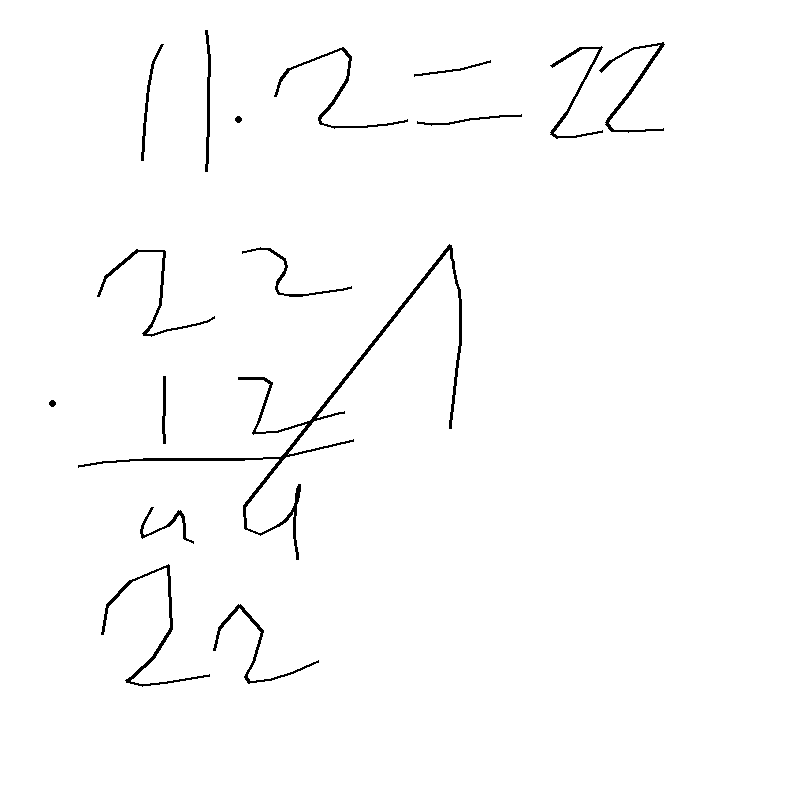 11.2=22
22
. 12
44
22